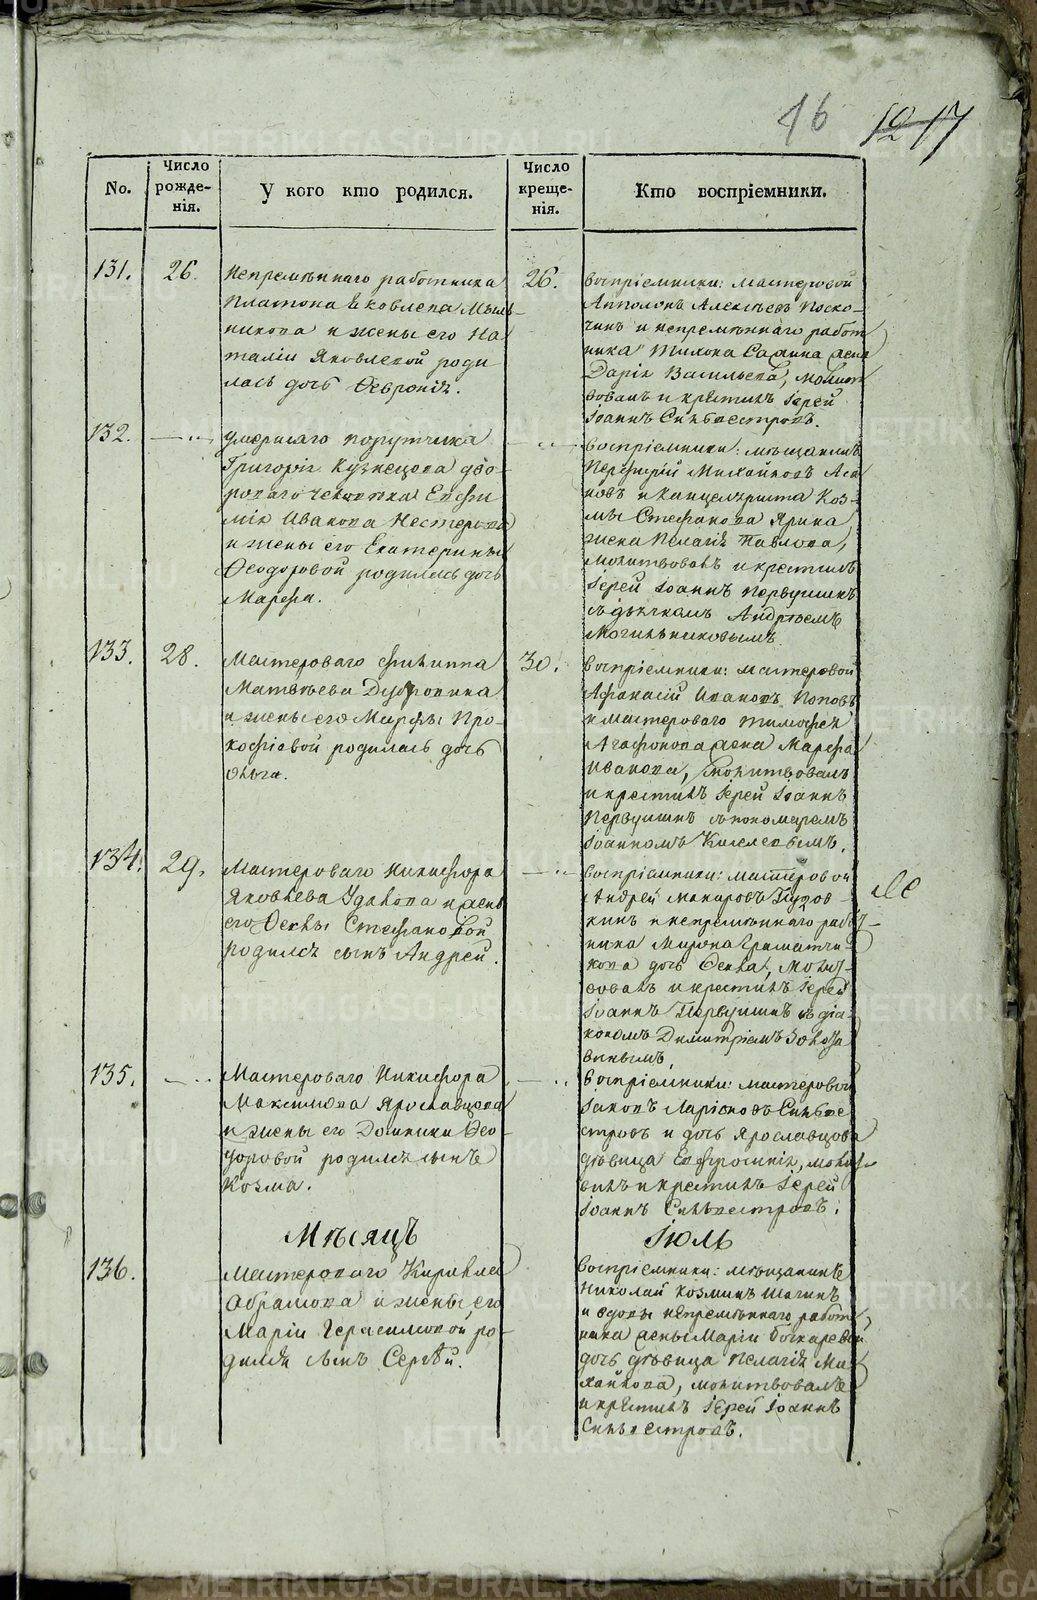 16 1217
No.
Число рожде-
нія.
У кого кто родился.
Число креще-
нія.
Кто воспріемники.
131.
26.
Непремѣннаго работника
Платона Яковлева Мыль-
никова и жены его На
таліи Яковлевой роди
лась дочь Ѳевронія.
26.
Воспріемники: мастеровой
Апполонъ Алексѣевъ Поско-
чинъ и непремѣннаго работ
ника Тихона жена
Дарія Васильева, молит
вовалъ и крестилъ Іерей
Іоаннъ Сильвестровъ.
132.
умершаго порутчика
Григорія Кузнецова дво-
роваго человѣка Евфи
мія Иванова Нестерова
и жены его Екатерины
Ѳеодоровой родилась дочь
Марфа.
Воспріемники: мѣщанинъ
Перфирій Михайловъ Аса
новъ и канцеляриста Коз-
мы Стефанова Ярина
жена Пелагія Павлова,
молитвовалъ и крестилъ
Іерей Іоаннъ Первушинъ
съ дьячкомъ Андреемъ
Могильниковымъ
133.
28.
Мастероваго Филиппа
Матвѣева Дубровина
и жены его Марфы Про-
кофіевой родилась дочь
Ольга.
30.
Воспріемники: мастеровой
Афанасій Ивановъ Поповъ
и мастероваго Тимофея
Агафонова жена Марфа
Иванова, молитвовалъ
и крестилъ Іерей Іоаннъ
Первушинъ съ пономаремъ
Іоанномъ Киселевымъ.
134.
29.
Мастероваго Никифора
Яковлева Удалова и жены
его Ѳеклы Стефановой
родился сынъ Андрей.
Воспріемники: мастеровой
Андрей Макаровъ
кинъ и непремѣннаго рабо
ника Мирона Граматчи-
кова дочь Ѳекла, молит-
вовалъ и крестилъ Іерей
Іоаннъ Первушинъ съ діа-
кономъ Димитріемъ
135.
Мастероваго Никифора
Максимова Ярославцова
и жены его Домники Ѳео-
доровой родился сынъ
Козма.
Воспріемники: мастеровой
Іаковъ Ларіоновъ Сильве
стровъ и дочь Ярославцова
дѣвица Евфросинія, молит-
вилъ и крестилъ Іерей
Іоаннъ Сильвестровъ.
Мѣсяцъ Іюль
136.
Мастероваго Кирилла
Абрамова и жены его
Маріи Герасимовой ро-
дился сынъ Сергѣй.
Воспріемники: мѣщанинъ
Николай Козминъ Шагинъ
и вдовы непремѣннаго работ
ника жены Маріи Бочкаревой
дочь дѣвица Пелагія Ми
хайлова, молитвовалъ
и крестилъ Іерей Іоаннъ
Сильвестровъ.
METRIKI.GASO-URAL.RU